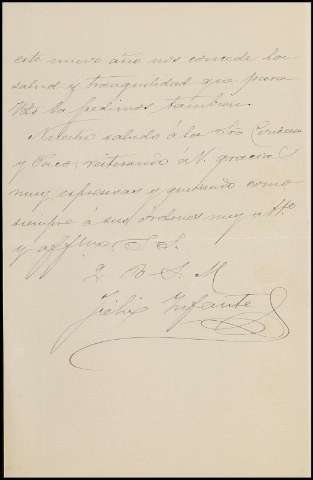 este nuevo año nos conceda la
salud y tranquilidad que para
Vds la pedimos tambien.
saludo á la
y Paco, reiterando á V. gracias
muy expresivas y quedando como
siempre a sus órdenes muy atto
y affmo S. S.
Q B S M
Félix Infante